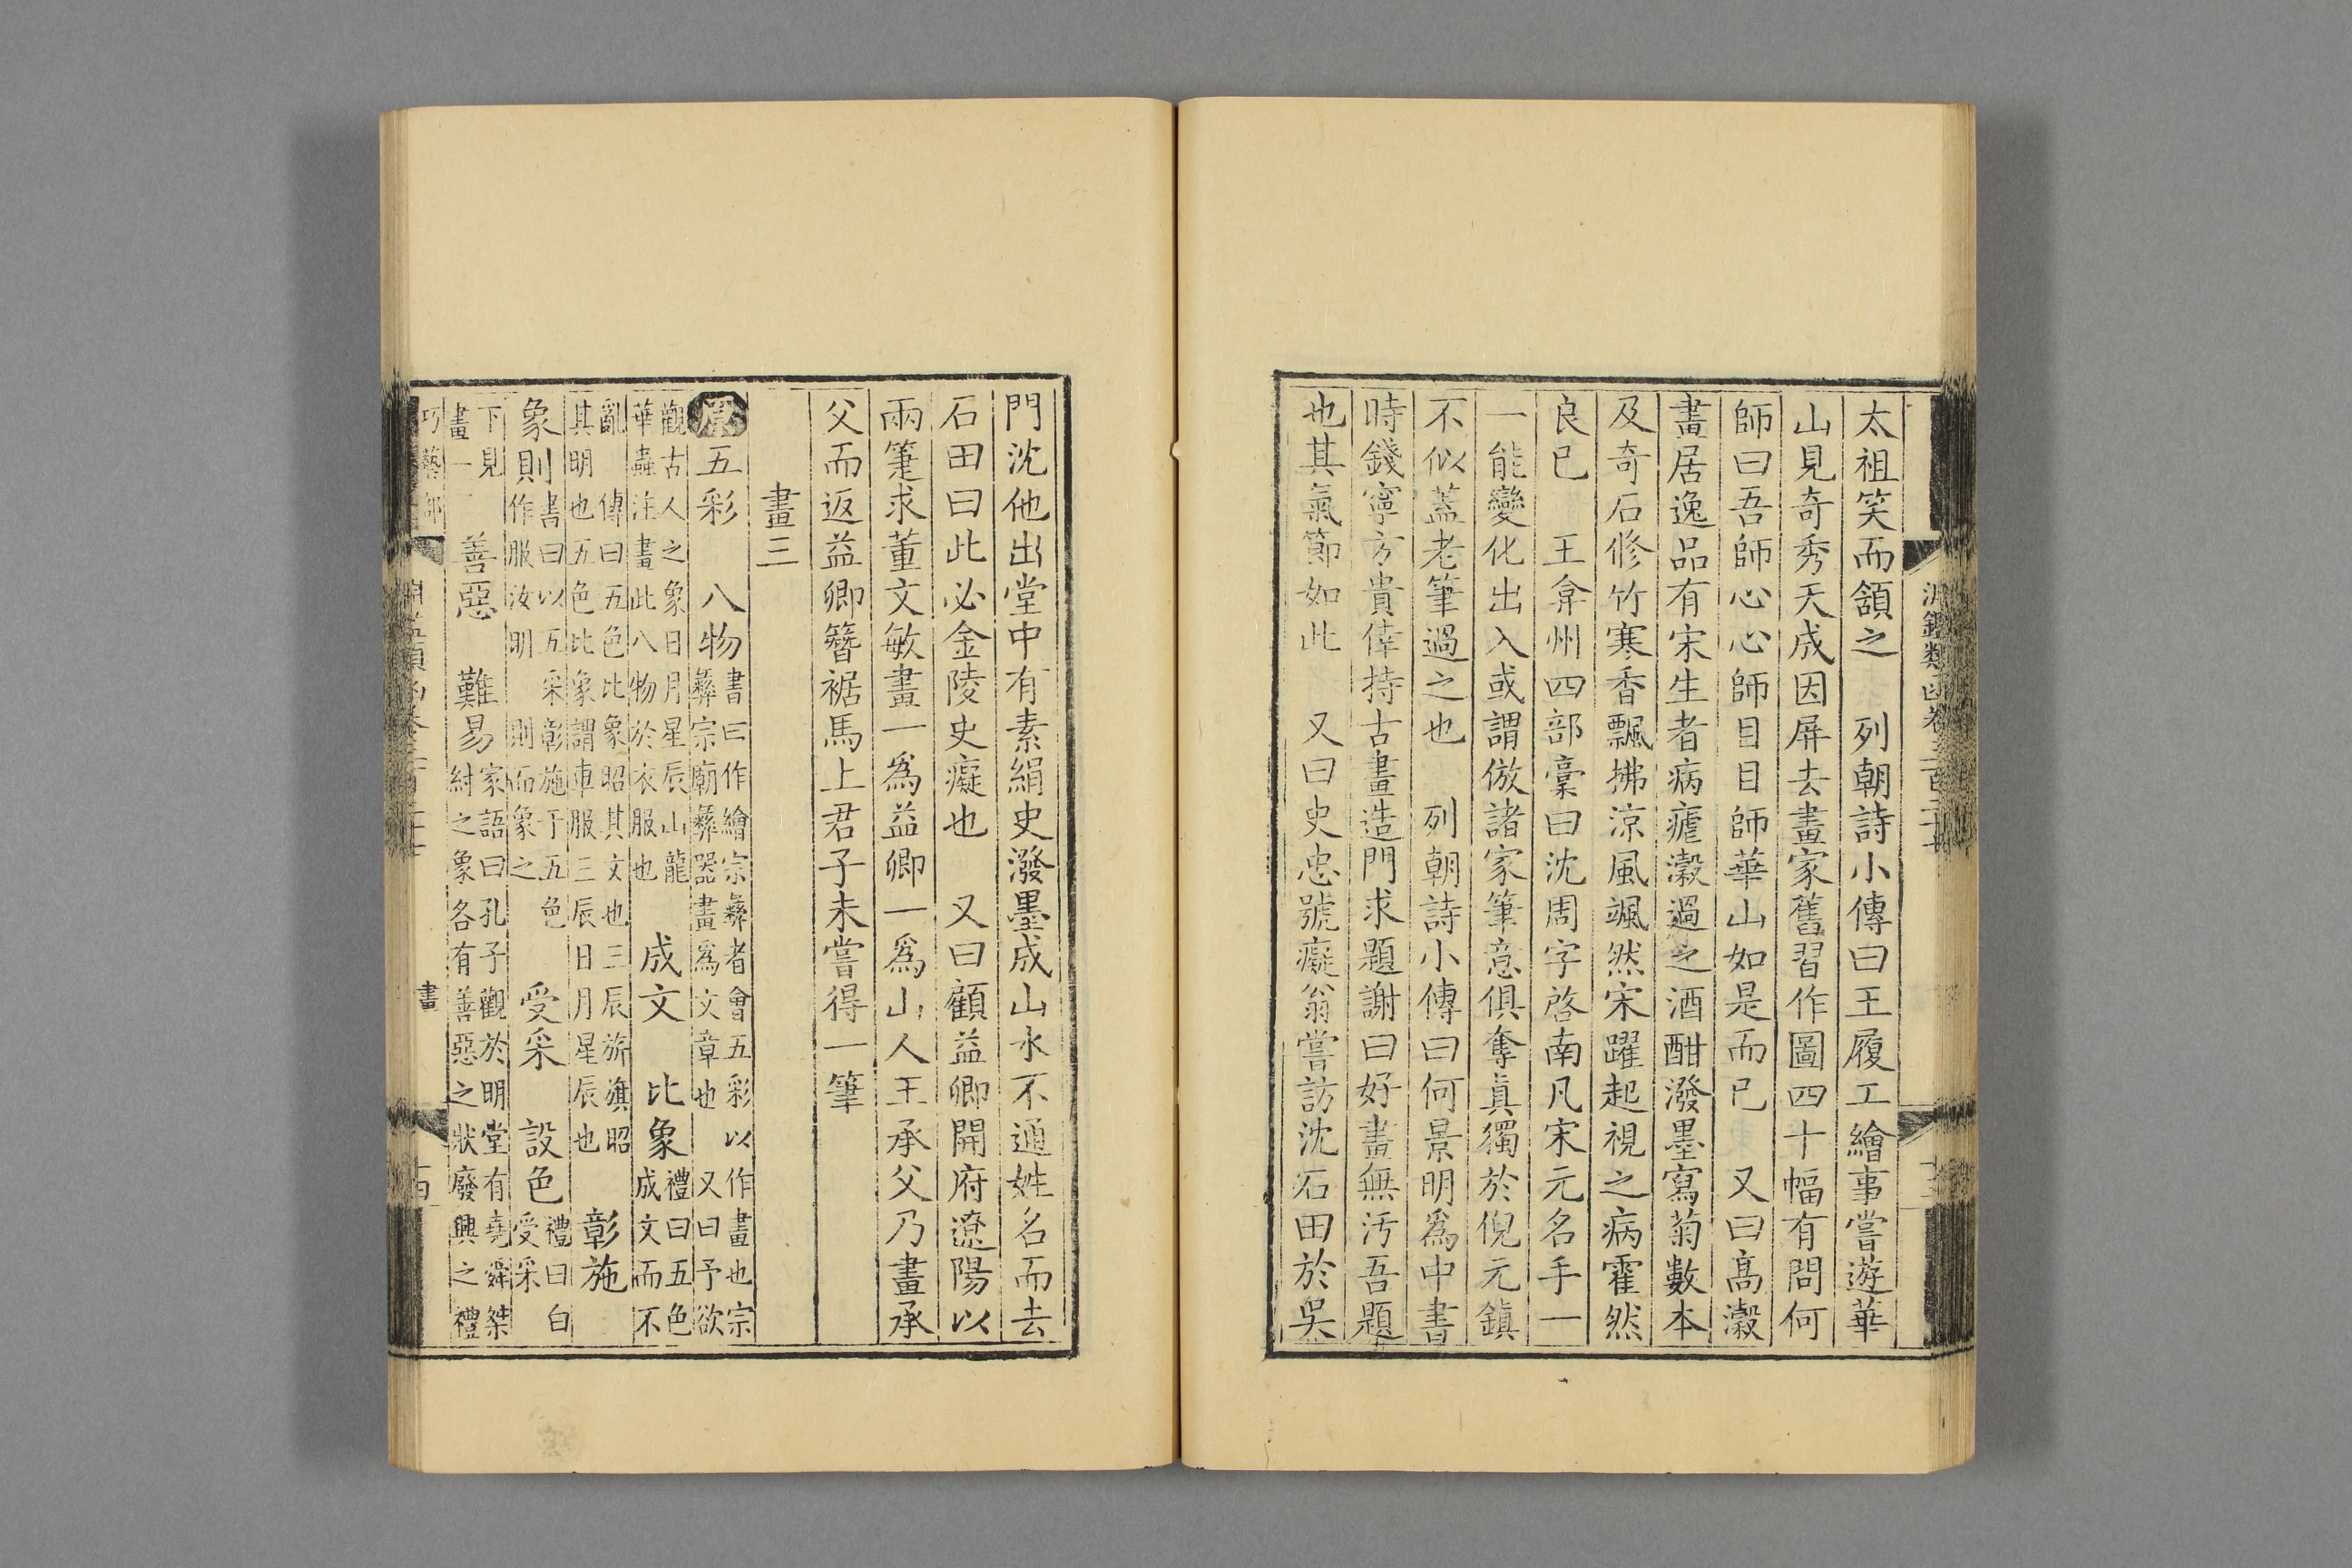 太祖笑而頷之　列朝詩小傳曰王履工繪事嘗遊華
山見奇秀天成因屏去畫家舊習作圖四十幅有問何
師曰吾師心心師目目師華山如是而已　又曰高瀔
畫居逸品有宋生者病瘧瀔過之酒酣潑墨寫菊數本
及奇石修竹寒香飄拂涼風颯然宋躍起視之病霍然
良已　王弇州四部稾曰沈周字啓南凡宋元名手一
一能變化出入或謂倣諸家筆意俱奪眞獨於倪元鎮
不似蓋老筆過之也　列朝詩小傳曰何景明爲中書
時錢寧方貴倖持古畫造門求題謝曰好畫無汚吾題
也其氣節如此　又曰史忠號癡翁嘗訪沈石田於吳
門沈他出堂中有素絹史潑墨成山水不通姓名而去
石田曰此必金陵史癡也　又曰顧益卿開府遼陽以
兩箑求董文敏畫一爲益卿一爲山人王承父乃畫承
父而返益卿簪裾馬上君子未嘗得一筆
畫三
原五彩　八物書曰作繪宗彝者會五彩以作畫也宗
彝宗廟彝器畫爲文章也　又曰予欲
觀古人之象日月星辰山龍
華蟲注畫此八物於衣服也　成文　比象禮曰五色
成文而不
亂　傳曰五色比象昭其文也三辰旂旗昭
其明也五色比象謂車服三辰日月星辰也　彰施
象則書曰以五采彰施于五色
作服汝明　則而象之　受采　設色禮曰白
受采
下見
畫一　善惡　難易家語曰孔子觀於明堂有堯舜桀
紂之象各有善惡之狀廢興之禮
巧藝部
畫